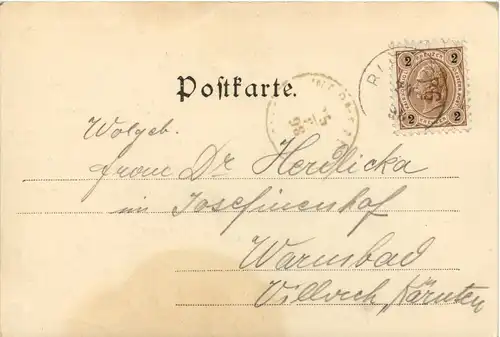 Postkarte.
2 2
Wolgeb.
Frau Dr Herdlicka
im Josefinenhof
Warmbad
Villach, Kärnten